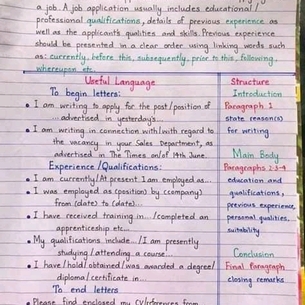 a job. A job application usually includes educational &
professional qualifications, details of previous experience as
well as the applicant's qualities and skills. Previous experience
should be presented in a clear order using linking words such
as: currently, before this, subsequently, prior to this, following,
whereupon etc.
Useful Language
To begin letters:
• I am writing to apply for the post/position of
... advertised in yesterday's...
• I am writing in connection with/with regard to
the vacancy in your Sales Department, as
advertised in The Times on/of 14th June.
Experience/Qualifications:
• I am currently/At present I am employed as...
• I was employed as (position) by (company)
from (date) to (date)...
• I have received training in.../completed an
apprenticeship etc...
• My qualifications include.../I am presently
studying/attending a course...
• I have/hold/obtained/was awarded a degree/
diploma/certificate in...
To end letters
• Please find enclosed my CV/references from
Structure
Introduction
Paragraph 1
state reason(s)
for writing
Main Body
Paragraphs 2-3-4
education and
qualifications,
previous experience,
personal qualities,
suitability
Conclusion
Final Paragraph
closing remarks